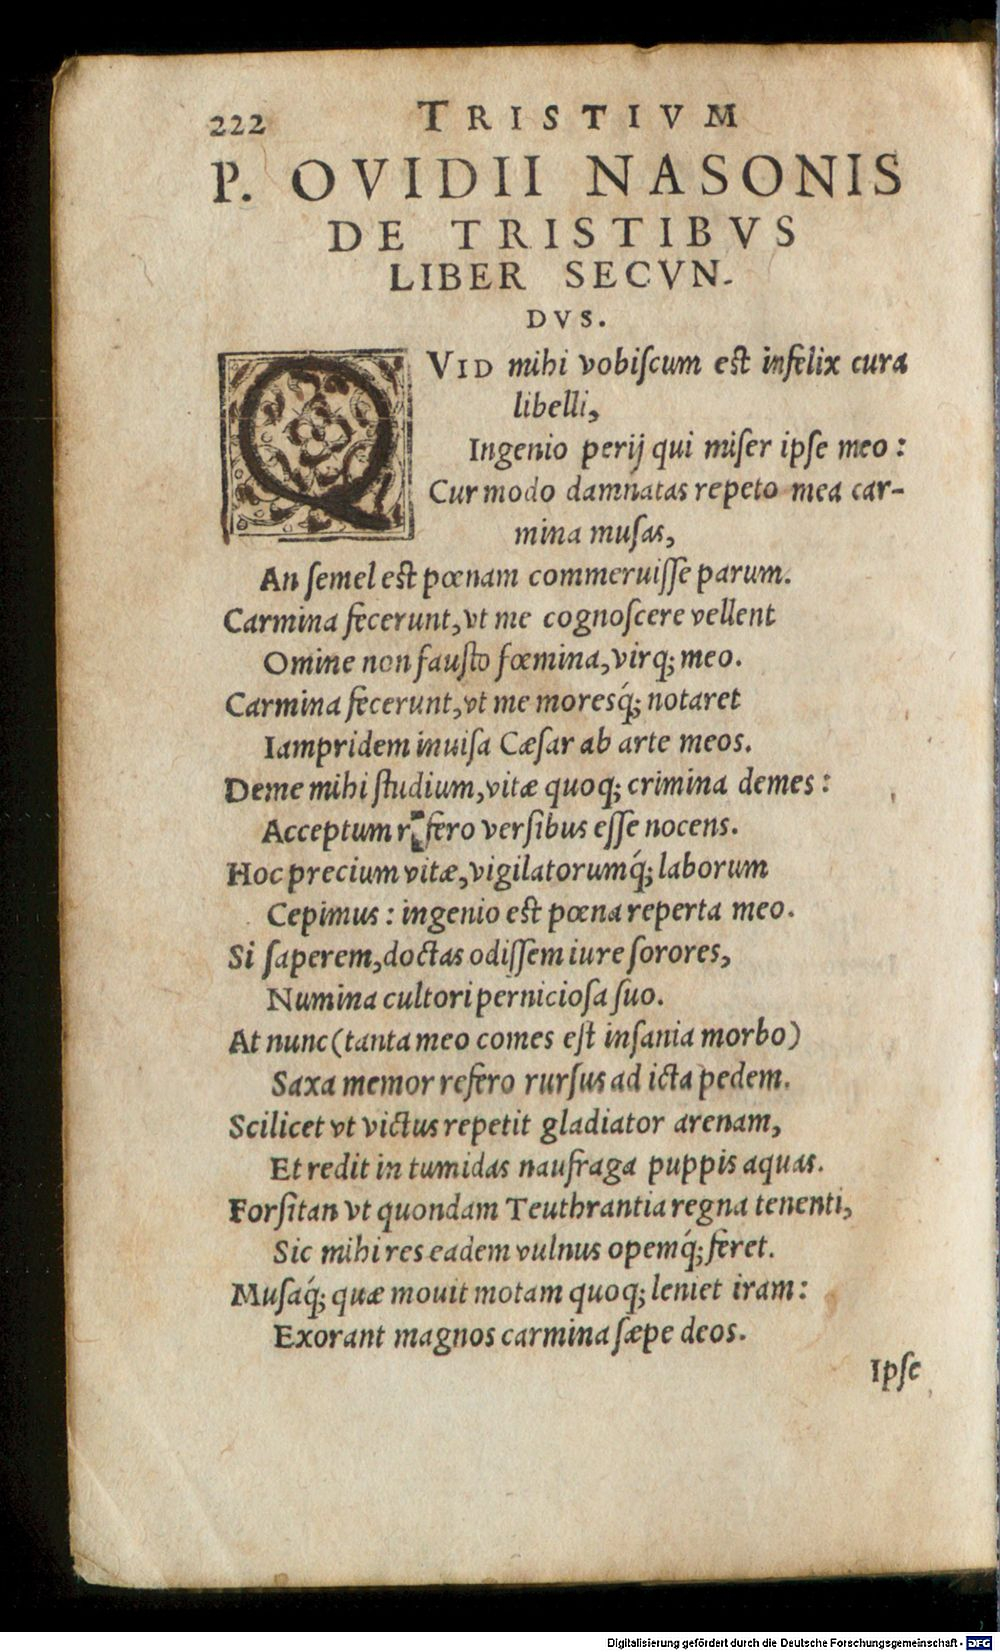 222 TRISTIVM
P. OVIDII NASONIS
DE TRISTIBVS
LIBER SECVN-
DVS.
QVID mihi vobiſcum eſt infelix cura
libelli,
Ingenio perij qui miſer ipſe meo :
Cur modo damnatas repeto mea car-
mina muſas,
An ſemel eſt pœnam commeruiſſe parum.
Carmina fecerunt, vt me cognoſcere vellent
Omine non fauſto fœmina, virq; meo.
Carmina fecerunt, vt me moresq́; notaret
Iampridem inuiſa Cæſar ab arte meos.
Deme mihi ſtudium, vitæ quoq; crimina demes :
Acceptum refero verſibus eſſe nocens.
Hoc precium vitæ, vigilatorumq́; laborum
Cepimus : ingenio eſt pœna reperta meo.
Si ſaperem, doctas odiſſem iure ſorores,
Numina cultori pernicioſa ſuo.
At nunc (tanta meo comes eſt inſania morbo)
Saxa memor refero rurſus ad icta pedem.
Scilicet vt victus repetit gladiator arenam,
Et redit in tumidas naufraga puppis aquas.
Forſitan vt quondam Teuthrantia regna tenenti,
Sic mihi res eadem vulnus opemq́; feret.
Muſaq́; quæ mouit motam quoq; leniet iram :
Exorant magnos carmina ſæpe deos.
Ipſe
Digitalisierung gefördert durch die Deutsche Forschungsgemeinschaft - DFG